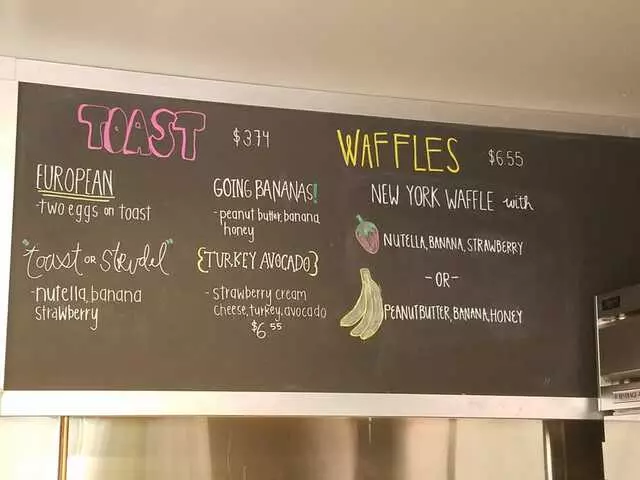 TOAST $3.74
EUROPEAN
-two eggs on toast
"toast OR strudel"
-nutella, banana
strawberry
GOING BANANAS!
-peanut butter, banana
honey
{TURKEY AVOCADO}
-strawberry cream
cheese, turkey, avocado
$6.55
WAFFLES $6.55
NEW YORK WAFFLE with
NUTELLA, BANANA, STRAWBERRY
-OR-
PEANUTBUTTER, BANANA, HONEY